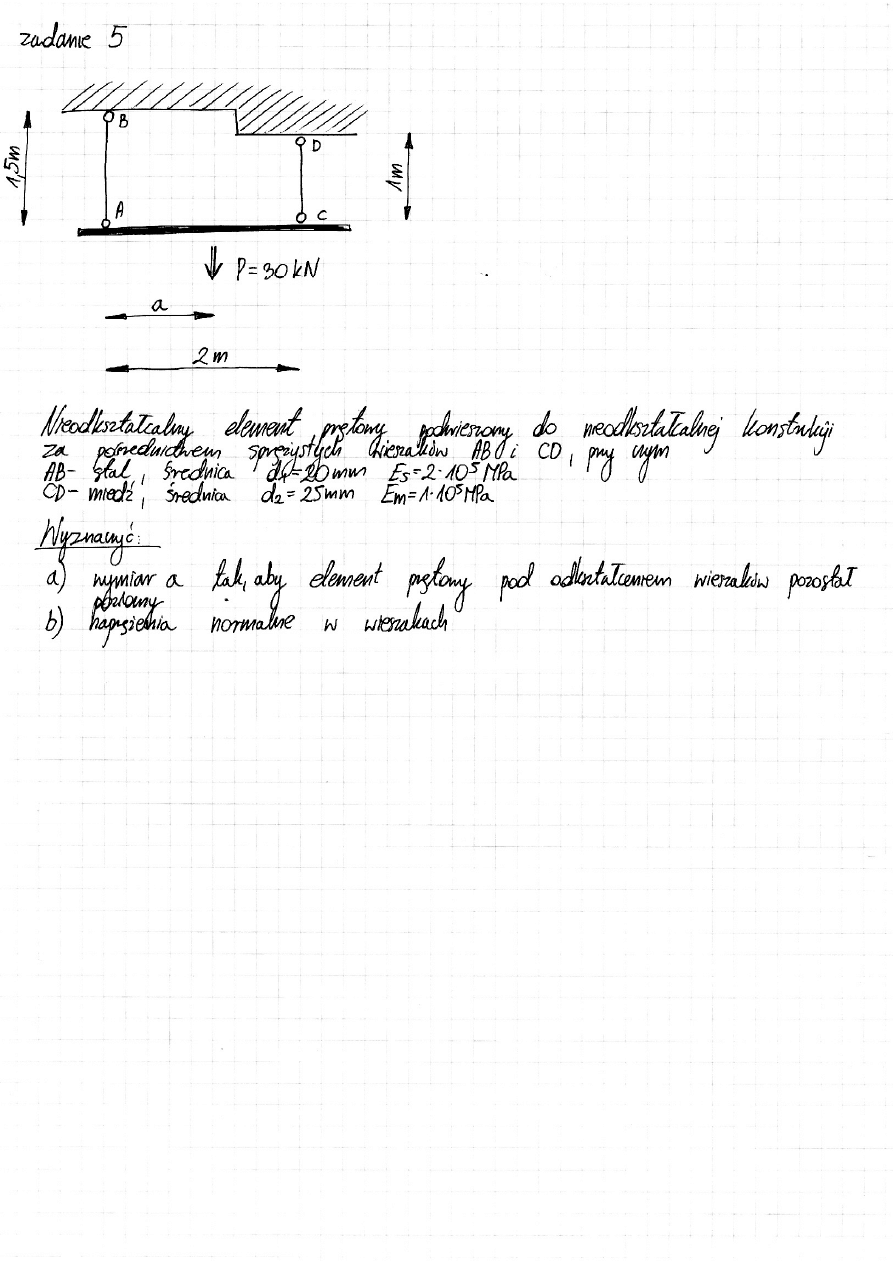 zadanie 5
B
D
1,5m
1m
A
C
P=30kN
a
2m
Nieodkształcalny element prętowy podwieszony do nieodkształcalnej konstrukcji
za pośrednictwem sprężystych wieszaków AB i CD, przy czym
AB- stal, średnica d₁=20mm Es=2·10⁵MPa
CD- miedź, średnica d₂=25mm Em=1·10⁵MPa
Wyznaczyć:
a) wymiar a tak, aby element prętowy pod odkształceniem wieszaków pozostał
poziomy
b) naprężenia normalne w wieszakach